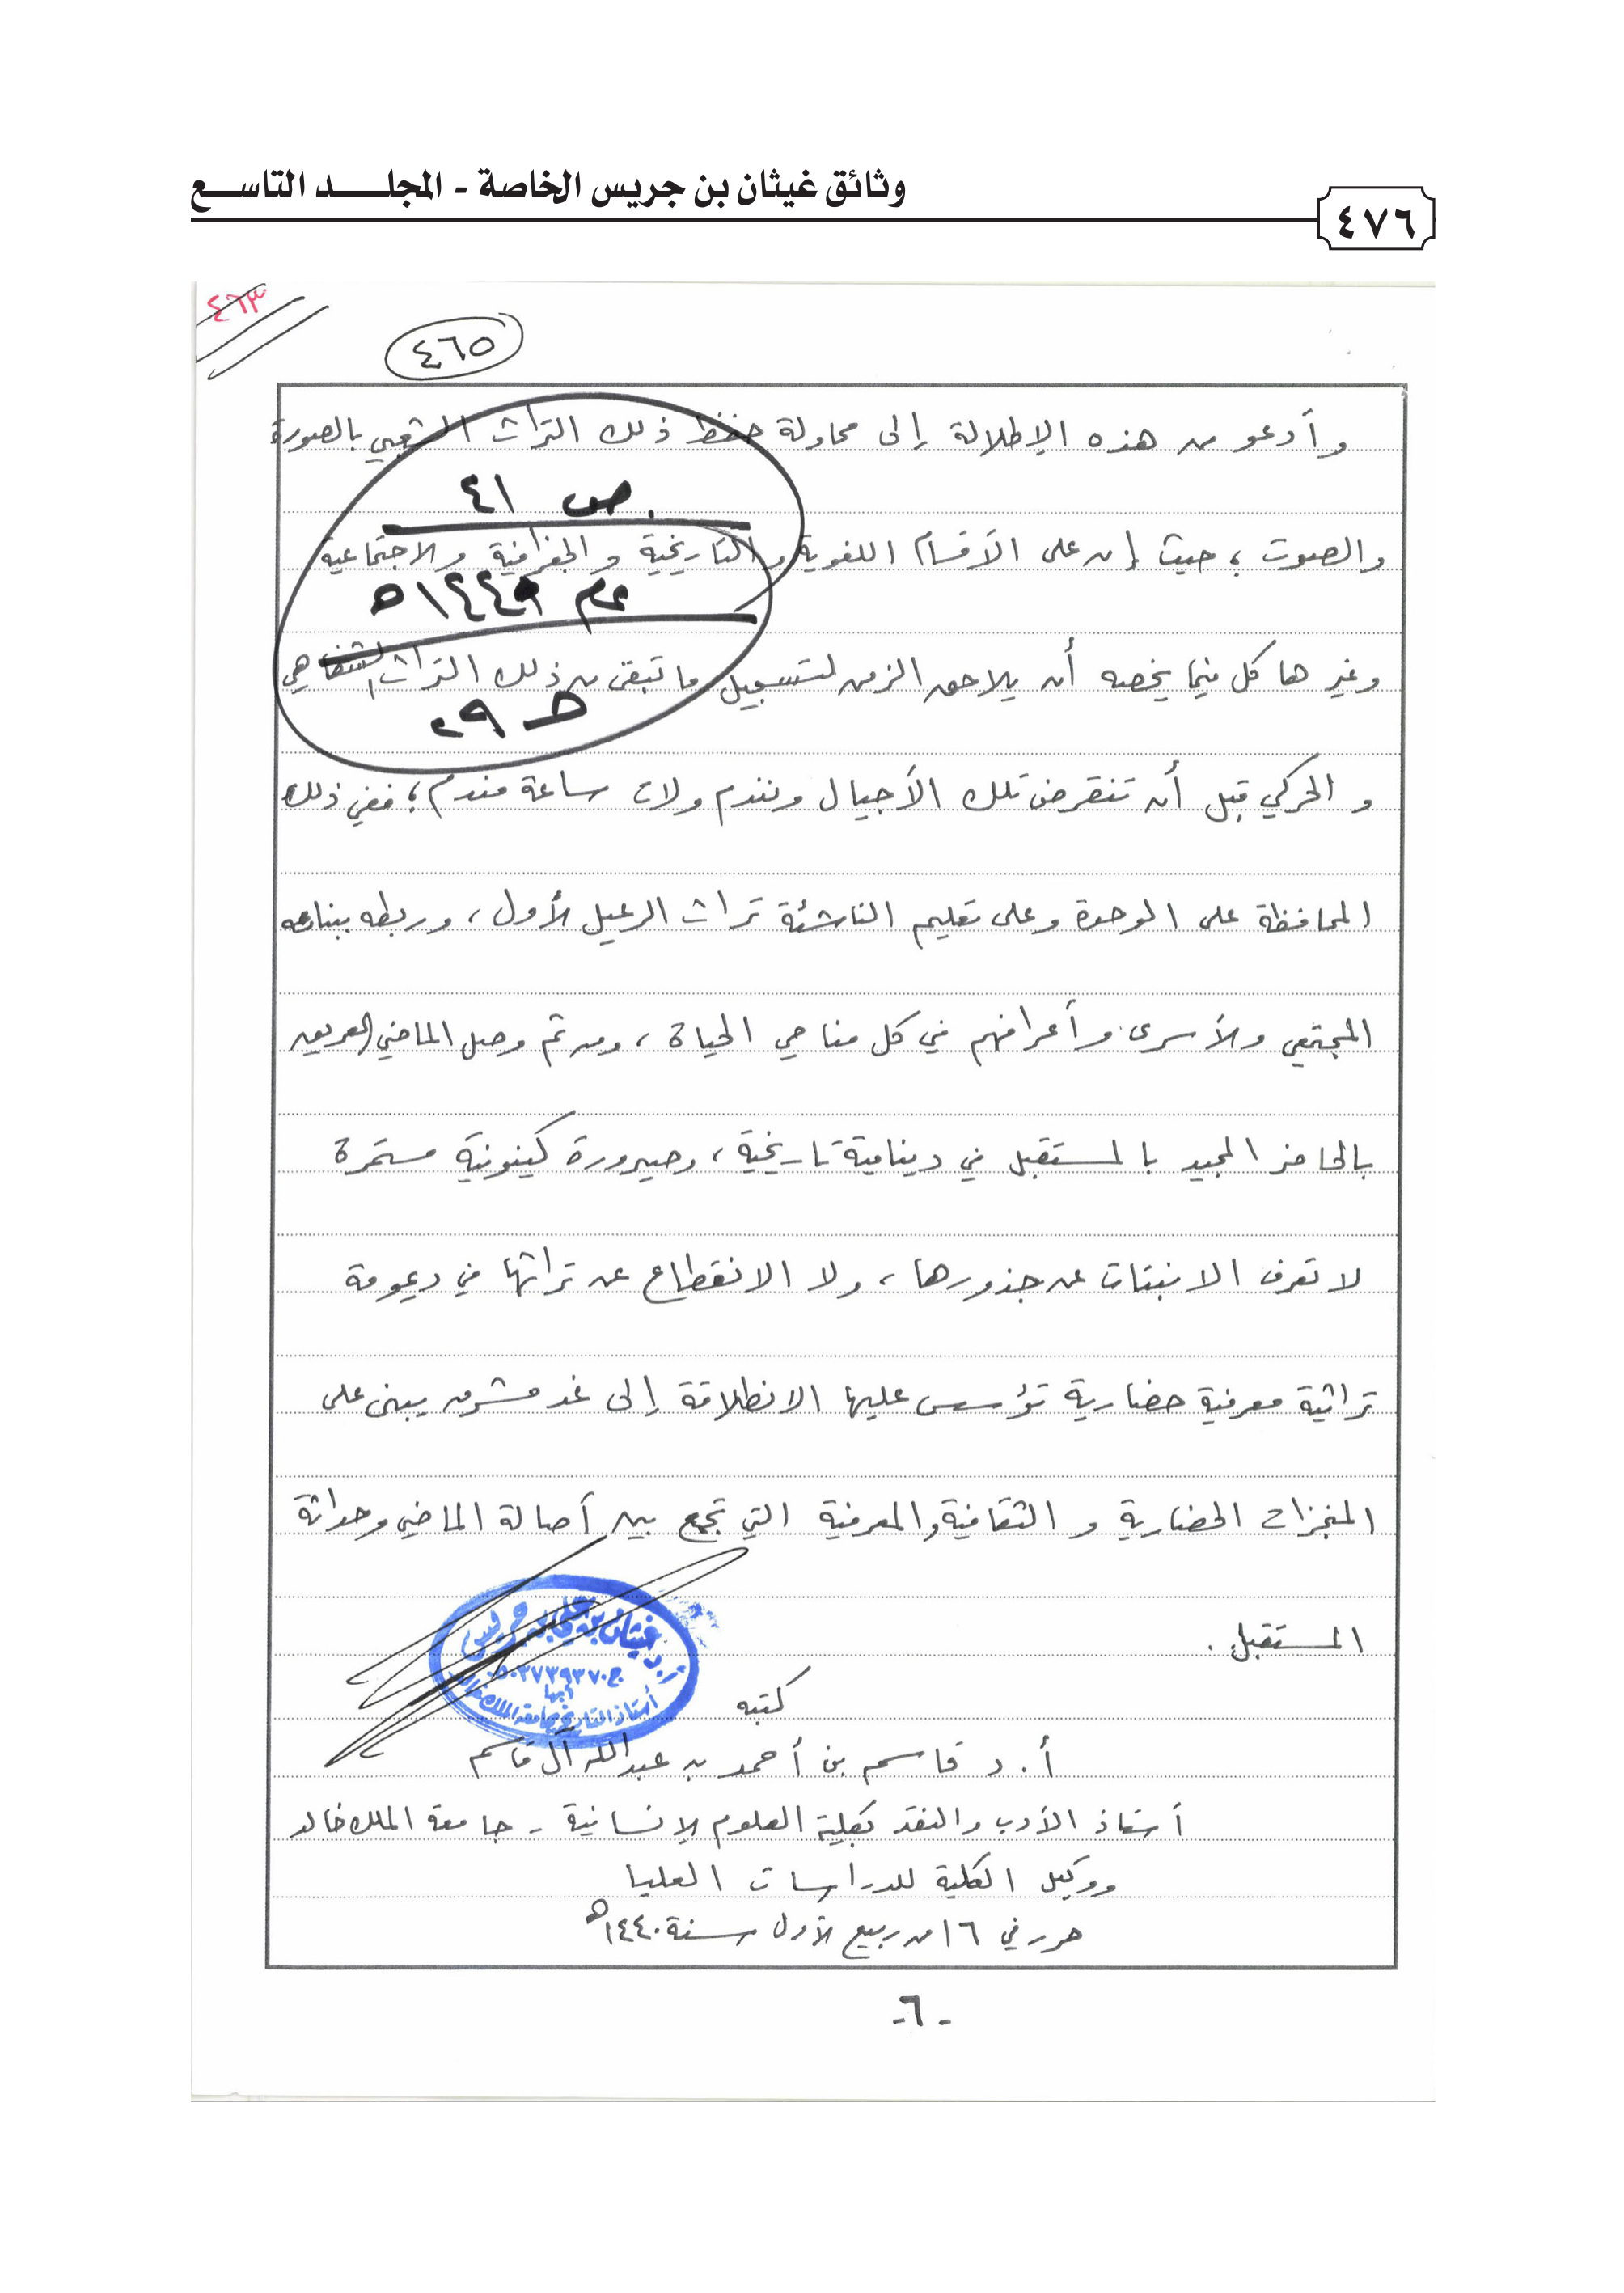 وثائق غيثان بن جريس الخاصة - المجلـــــد التاســـع
٤٧٦
٤٦٣
٤٦٥
وأدعو من هذه الإطلالة إلى محاولة حفظ ذلك التراث الشعبي بالصورة
ص ٤١
والصوت ؛ حيث إن على الأقسام اللغوية والتاريخية والجغرافية والاجتماعية
عام ١٤٤٠هـ
وغيرها كل فيما يخصه أن يلاحق الزمن لتسجيل ما تبقى من ذلك التراث الشفاهي
والحركي قبل أن تنقرض تلك الأجيال ونندم ولات ساعة مندم ؛ ففي ذلك
المحافظة على الوحدة وعلى تعليم الناشئة تراث الرعيل الأول ، وربطه ببنائه
المجتمعي والأسرى وأعرافهم في كل مناحي الحياة ، ومن ثم وصل الماضي العريق
بالحاضر المجيد بالمستقبل في دينامية تاريخية ، وصيرورة كينونية مستمرة
لا تعرف الانبتات عن جذورها ، ولا الانقطاع عن تراثها في ديمومة
تراثية معرفية حضارية تؤسس عليها الانطلاقة إلى غد مشرق يبنى على
المنجزات الحضارية و الثقافية والمعرفية التي تجمع بين أصالة الماضي وحداثة
المستقبل .
أ.د غيثان بن علي بن جريس
أبها
كتبه
أ. د قاسم بن أحمد بن عبدالله آل قاسم
أستاذ الأدب والنقد بكلية العلوم الإنسانية - جامعة الملك خالد
ووكيل الكلية للدراسات العليا
حرر في ١٦ من ربيع الأول سنة ١٤٤٠هـ
- ٦ -